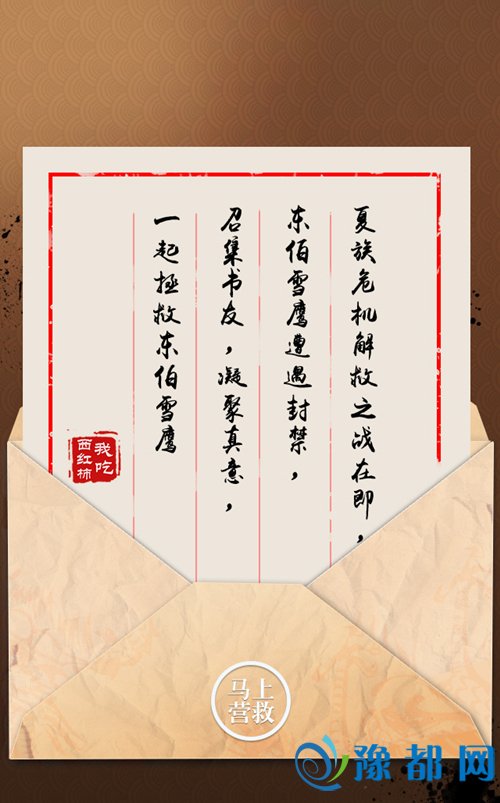 夏族危机解救之战在即，
东伯雪鹰遭遇封禁，
召集书友，凝聚真意，
一起拯救东伯雪鹰
我吃
西红柿
马上
营救
豫都网